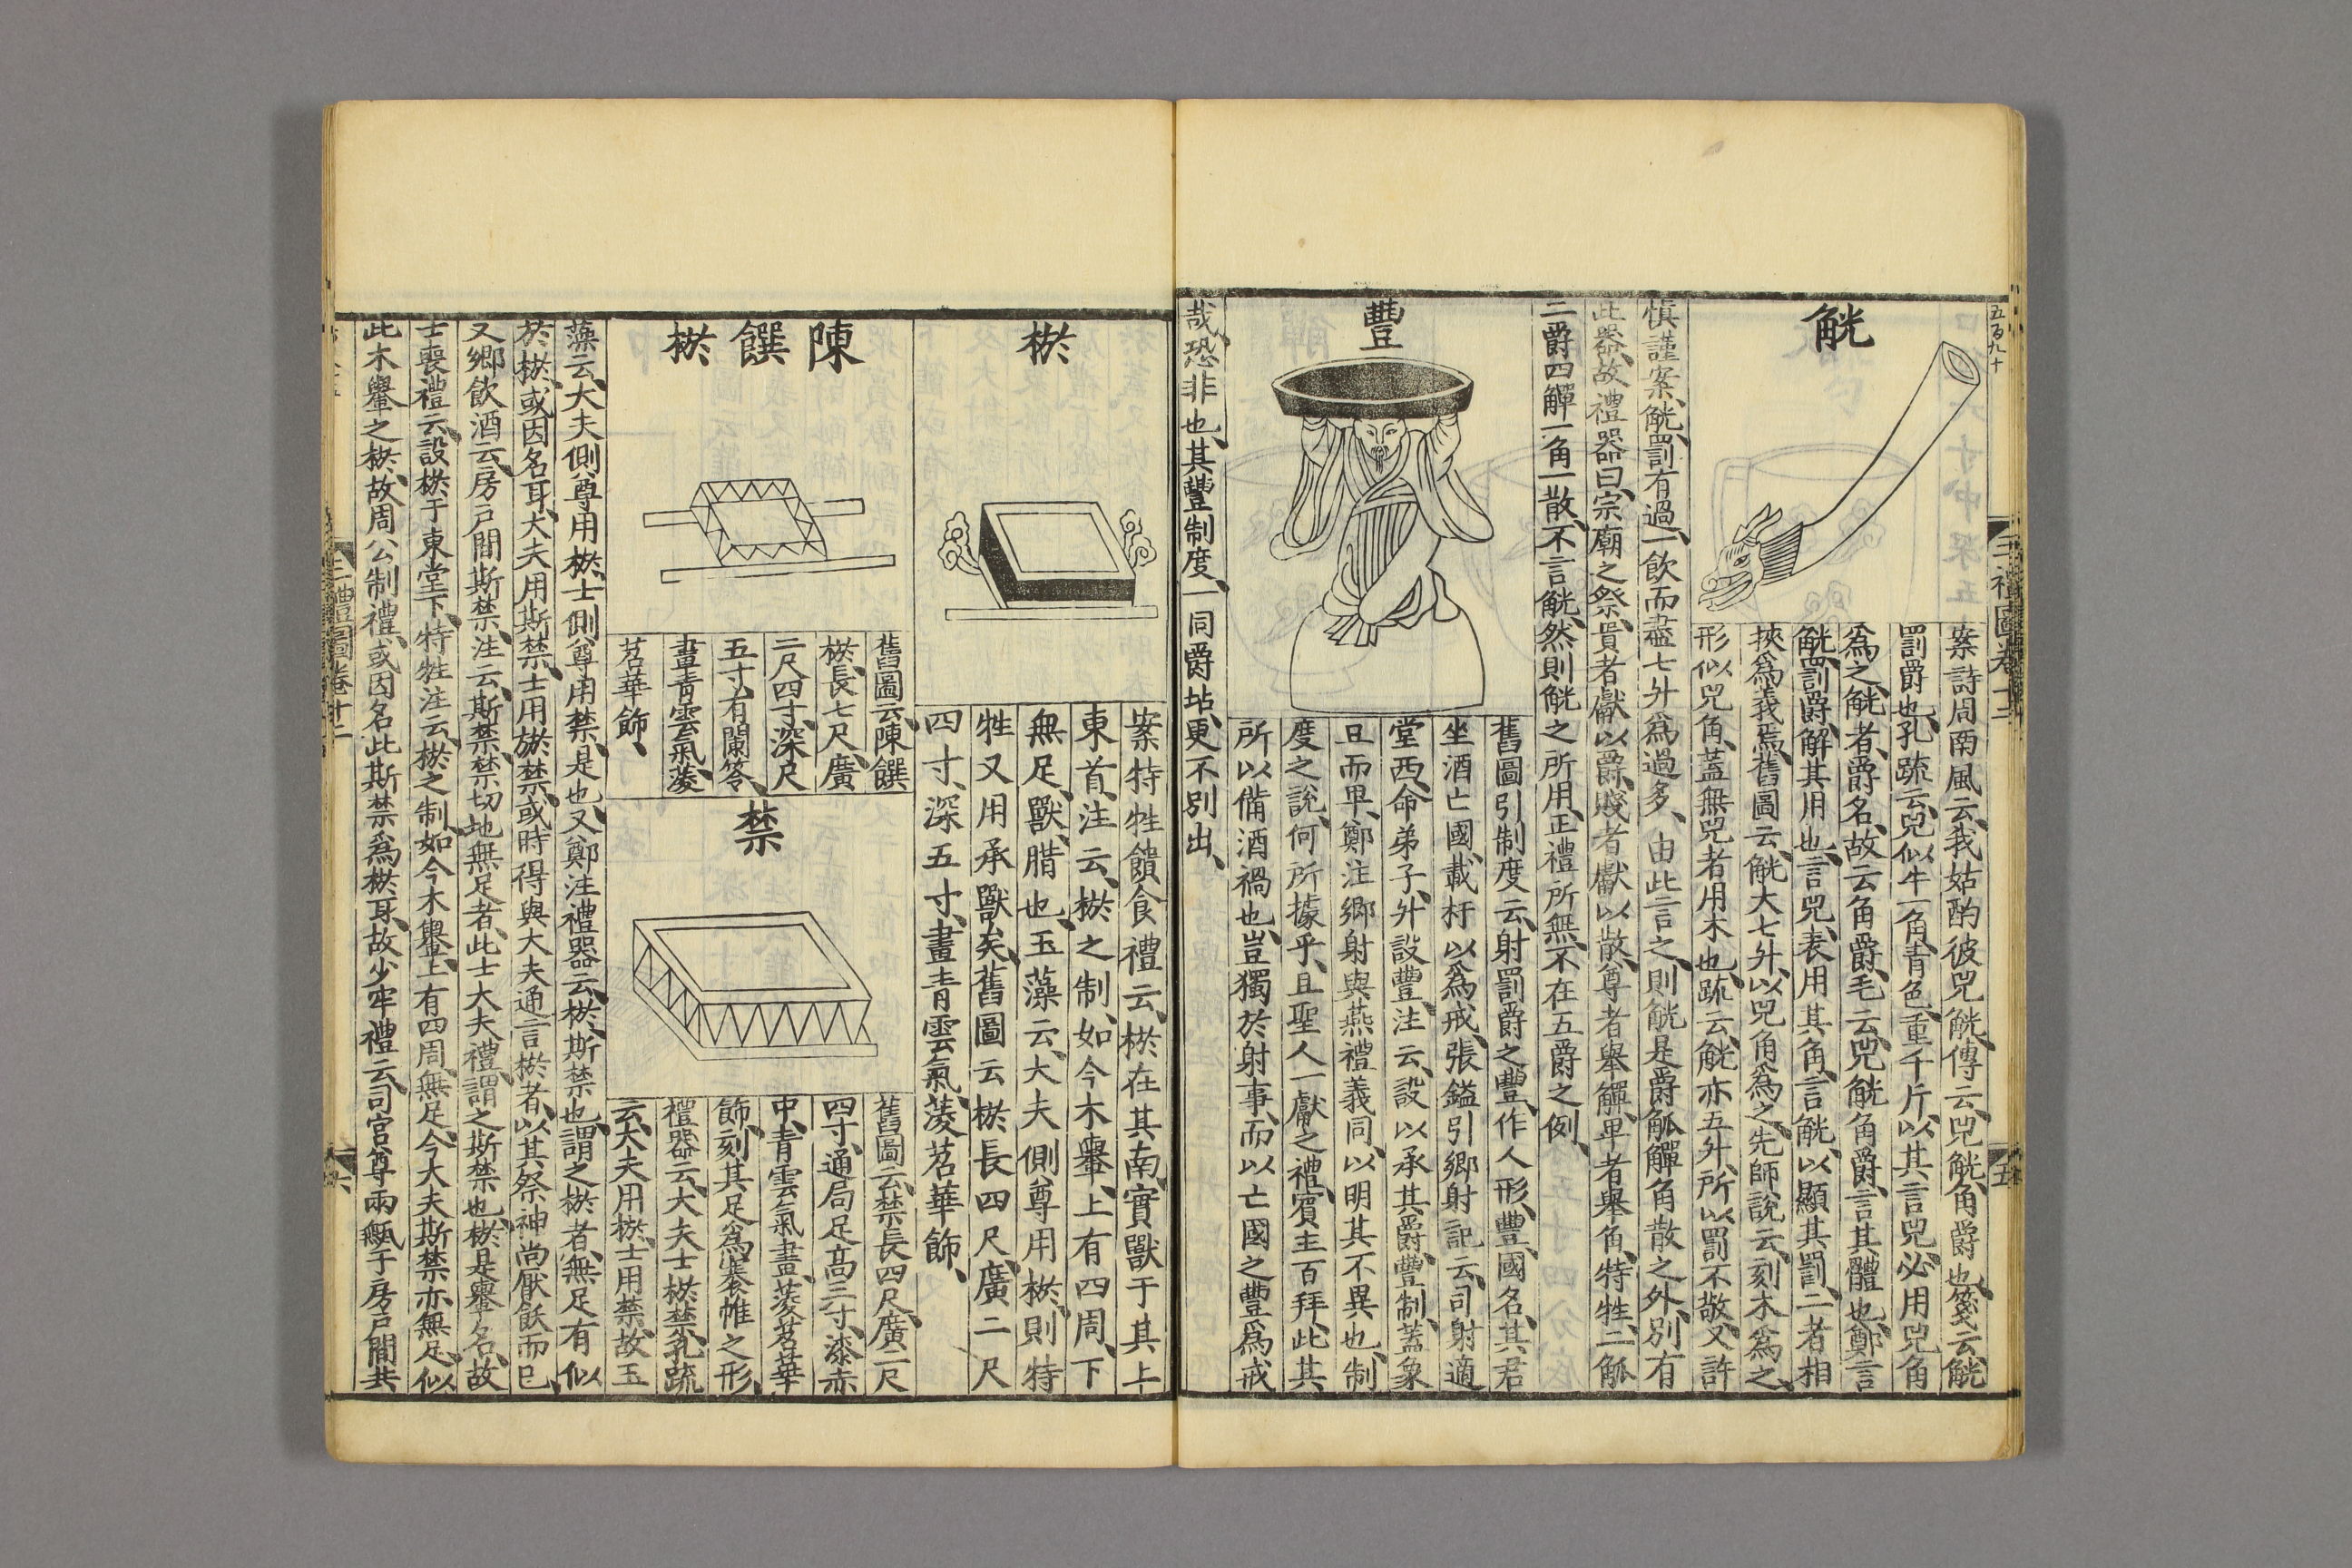 五百九十
三禮圖卷十二
五
觥
案詩周南風云、我姑酌彼兕觥、傳云、兕觥、角爵也、箋云、觥
罰爵也、孔疏云、兕似牛一角、青色、重千斤、以其言兕、必用兕角
爲之、觥者、爵名、故云角爵、毛云、兕觥角爵、言其體也、鄭言
觥罰爵、解其用也、言兕、表用其角、言觥、以顯其罰、二者相
挾爲義焉、舊圖云、觥大七升、以兕角爲之、先師說云、刻木爲之、
形似兕角、蓋無兕者用木也、疏云、觥亦五升、所以罰不敬、又許
慎謹案、觥、罰有過、一飲而盡、七升爲過多、由此言之、則觥是爵觚觶角散之外、別有
此器、故禮器曰、宗廟之祭、貴者獻以爵、賤者獻以散、尊者舉觶、卑者舉角、特牲、二觚
二爵四觶一角一散、不言觥、然則觥之所用、正禮所無、不在五爵之例、
豐
舊圖引制度云、射罰爵之豐、作人形、豐、國名、其君
坐酒亡國、載杅以爲戒、張鎰引鄉射記云、司射適
堂西、命弟子、升設豐、注云、設以承其爵、豐制、蓋象
豆而卑、鄭注鄉射與燕禮義同、以明其不異也、制
度之說、何所據乎、且聖人一獻之禮、賓主百拜、此其
所以備酒禍也、豈獨於射事、而以亡國之豐爲戒
哉、恐非也、其豐制度、一同爵坫、更不別出、
棜
案特牲饋食禮云、棜在其南、實獸于其上
東首、注云、棜之制、如今木轝、上有四周、下
無足、獸、腊也、玉藻云、大夫側尊用棜、則特
牲又用承獸矣、舊圖云、棜長四尺、廣二尺
四寸、深五寸、畫青雲氣、菱苕華飾、
陳饌棜
舊圖云、陳饌
棜、長七尺、廣
二尺四寸、深尺
五寸、有闌笭、
畫青雲氣、菱
苕華飾、
禁
舊圖云、禁長四尺、廣二尺
四寸、通局足高三寸、漆赤
中、青雲氣畫、菱苕華
飾、刻其足、爲褰帷之形、
禮器云、大夫士棜禁、孔疏
云、大夫用棜、士用禁、故玉
藻云、大夫側尊用棜、士側尊用禁、是也、又鄭注禮器云、棜、斯禁也、謂之棜者、無足、有似
於棜、或因名耳、大夫用斯禁、士用棜禁、或時得與大夫通言棜者、以其祭神尚厭飫而已、
又鄉飲酒云、房戶間斯禁、注云、斯禁、禁切地無足者、此士大夫禮、謂之斯禁也、棜是轝名、故
士喪禮云、設棜于東堂下、特牲注云、棜之制、如今木轝上有四周、無足、今大夫斯禁、亦無足、似
此木轝之棜、故周公制禮、或因名此斯禁爲棜耳、故少牢禮云、司宮尊兩甒于房戶間、共
三禮圖卷十二
六